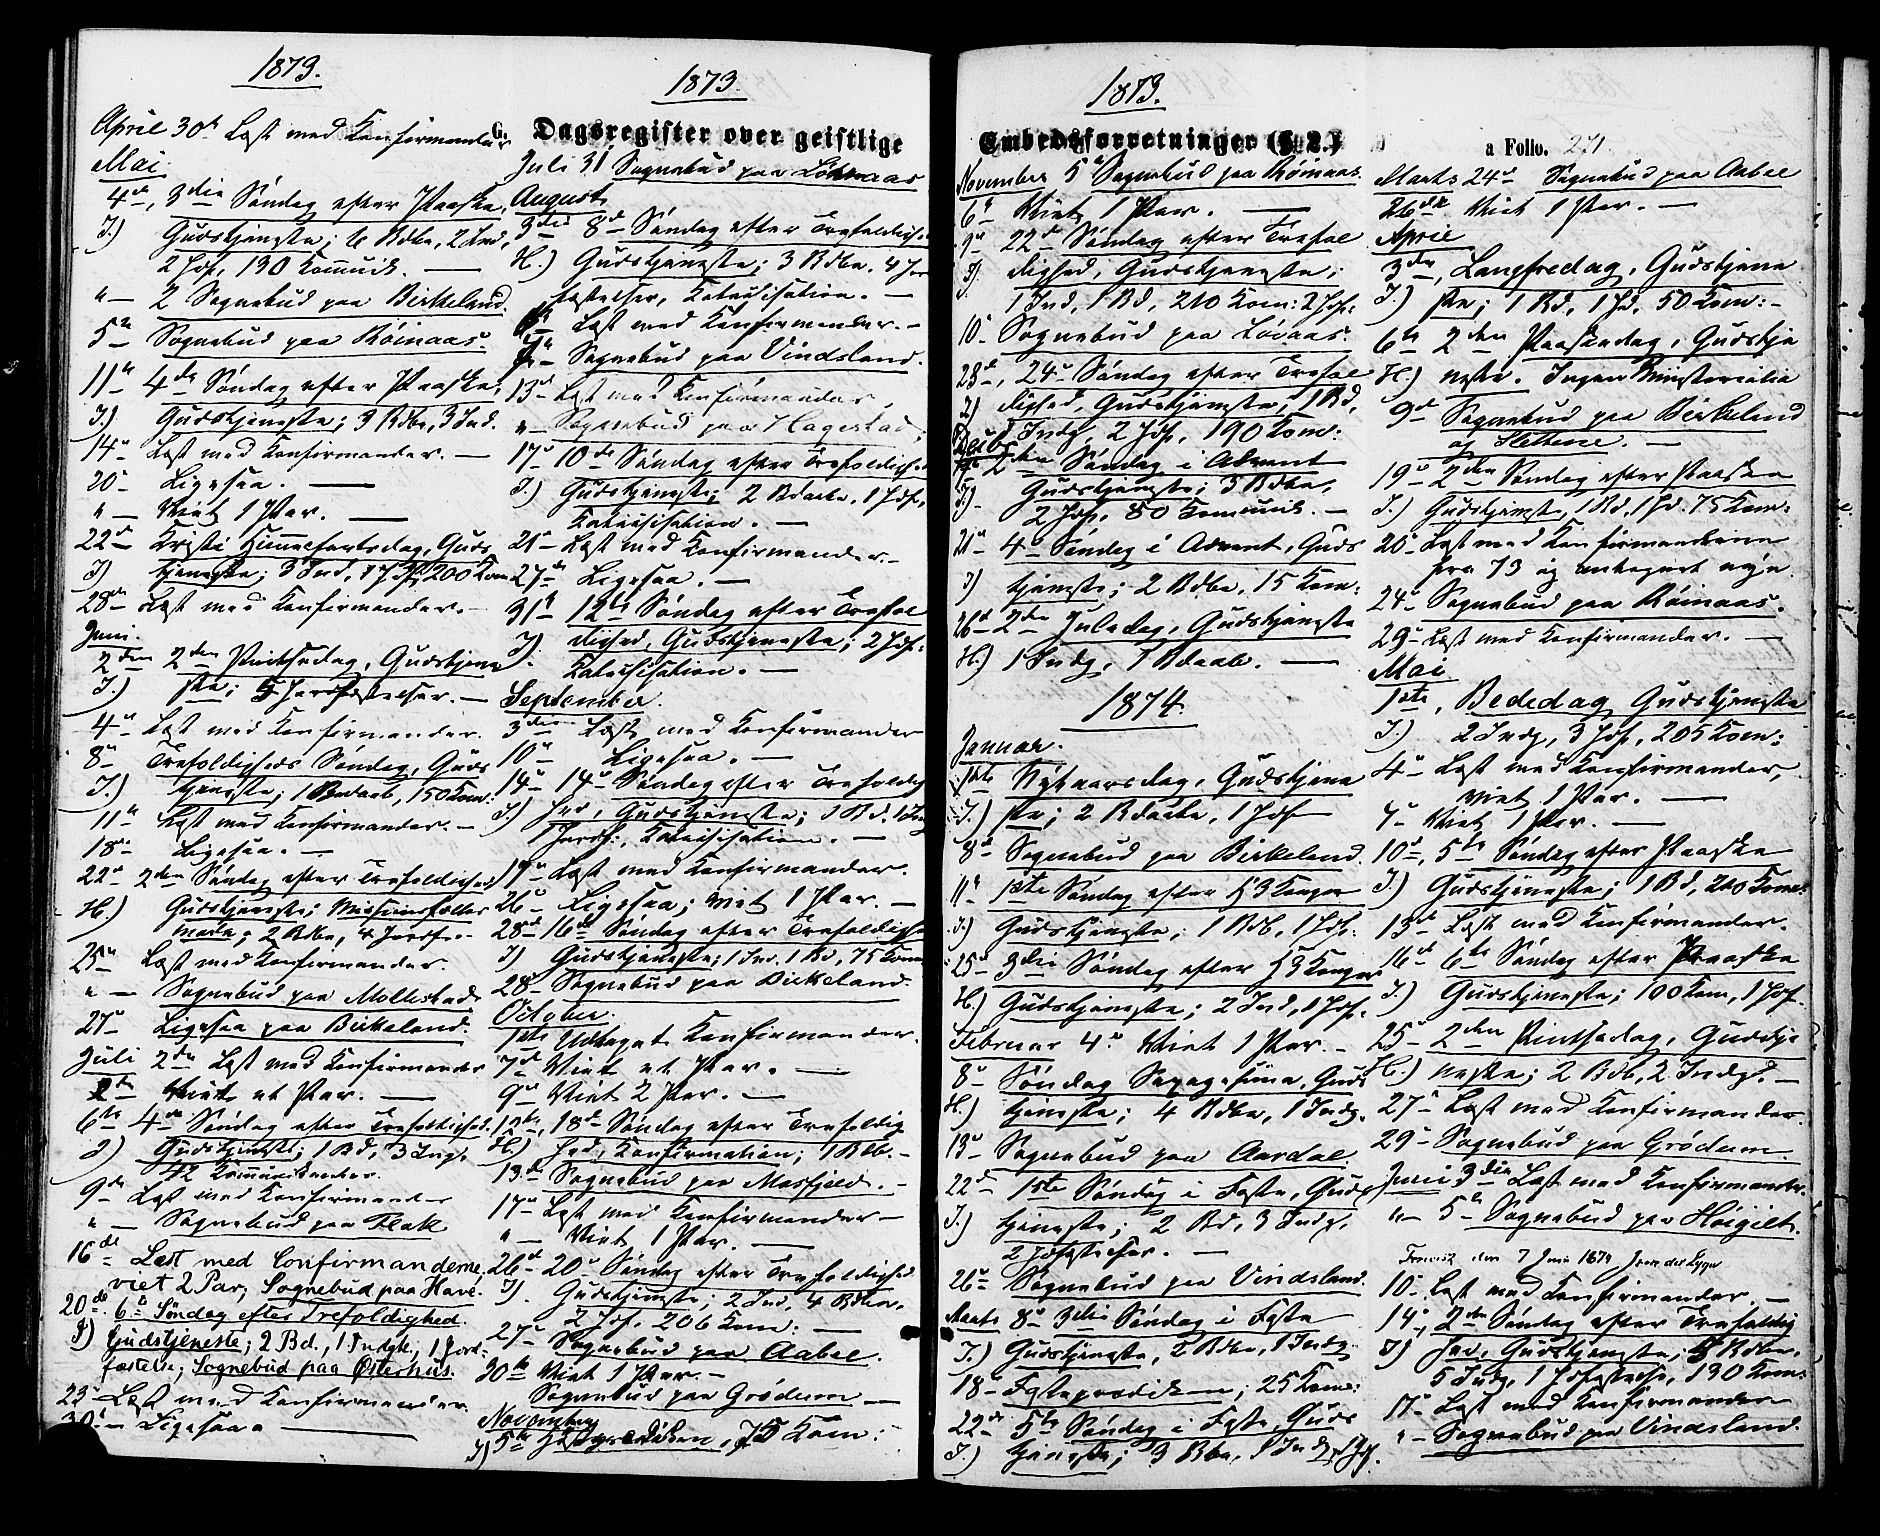 1873.
April 30t Læst med Konfirmander
Mai
4de, 3die Søndag efter Paaske,
I.) Gudstjeneste; 6 Bdbe, 2 Ind,
2 Jdf, 190 Kommunik. —
" — 2 Sognebud paa Birkeland.
5te Sognebud paa Røinaas.
11te 4de Søndag efter Paaske,
I.) Gudstjeneste; 3 Bdbe, 3 Ind.
14de Læst med Konfirmander. —
20de Ligesaa. —
" — Viet 1 Par. —
22de Kristi Himmelfartsdag, Guds
I) tjeneste; 3 Ind, 1 Jdf, 200 Kom
28de Læst med Konfirmander. —
Juni.
2den 2den Pintsedag, Gudstjene
I.) ste; 5 Jordfæstelser. —
4de Læst med Konfirmander.
8de Trefoldigheds Søndag, Guds
I.) tjeneste; 1 Bdaab, 150 Kom:
11te Læst med Konfirmander. —
18de Ligesaa. —
22de 2den Søndag efter Trefoldighed
H.) Gudstjeneste; Missions
2 Bdbe, 4 Jordf. —
25de Læst med Konfirmander.
" — Sognebud paa Mollestad
27de Ligesaa paa Birkeland.
Juli 2den Læst med Konfirmander
Viet et Par. —
6te 4de Søndag efter Trefoldighed.
I) Gudstjeneste; 1 Bd, 3 Ing,
42 Kommunikanter.
9de Læst med Konfirmander
" — Sognebud paa Flak
16de Læst med Confirmanderne,
viet 2 Par; Sognebud paa Have.
20de 6te Søndag efter Trefoldighed.
I) Gudstjeneste; 2 Bd., 1 Indgk., 1 Jord-
fæstelse; Sognebud paa Østerhus.
23de Læst med Konfirmander
30te Ligesaa. —
1873.
G. Dagsregister over geistlige
Juli 31 Sognebud paa
August
3die 8de Søndag efter Trefoldighed
H.) Gudstjeneste; 3 Bdbe. 4 Jor
fæstelser, Katekisation. —
6te Læst med Konfirmander. —
Sognebud paa Vindsland.
13de Læst med Konfirmander,
" Sognebud paa Hagestad,
17de 10de Søndag efter Trefoldighed
I.) Gudstjeneste; 2 Bdaabe, 1 Jdf,
Katekisation. —
21de Læst med Konfirmander. —
27de Ligesaa. —
31te 12te Søndag efter Trefol
I). dighed, Gudstjeneste; 2 Jdf.
Katekisation. —
September.
3die Læst med Konfirmander
10de Ligesaa. —
14de 14de Søndag efter Trefoldig
I.) hed, Gudstjeneste; 1 Bd. 1 Ind
1 Jordf. Katekisation. —
19de Læst med Konfirmander.
26de Ligesaa; viet 1 Par. —
28de 16de Søndag efter Trefoldighed
I) Gudstjeneste; 1 Ind. 1 Bd, 75 Kom
28de Sognebud paa Birkeland.
October.
1ste Udtaget Konfirmander.
7de Viet et Par. —
9de Viet 2 Par. —
12te, 18de Søndag efter Trefoldig
H.) hed, Konfirmation; 1 Bdb. —
13de Sognebud paa Mosfjeld. —
17de Læst med Konfirmander —
" — Viet 1 Par. —
26de 20de Søndag efter Trefoldighed
I). Gudstjeneste; 2 Ind, 4 Bdbe,
2 Jdf, 206 Kom: —
27de Sognebud paa Aabel.
30te Viet 1 Par. —
Sognebud paa Grødum —
November
I) 5te 75 Kom:
1873.
Embedsforretninger (§. 2.)
November 5te Sognebud paa Røinaas.
6te Viet 1 Par. —
9de 22de Søndag efter Trefol
I). dighed, Gudstjeneste;
1 Ind, 1 Bd, 210 Kom: 2 Jdf:
10de Sognebud paa Løvaas.
23de, 24de Søndag efter Trefol
I) dighed, Gudstjeneste, 1 Bd,
Indg, 2 Jdf, 190 Kom:
Decbr
2den Søndag i Advent
I). Gudstjeneste; 3 Bdbe,
2 Jdf, 80 Kommunik. —
21de 4de Søndag i Advent, Guds
I) tjeneste; 2 Bdbe, 15 Kom:
26de 2den Juledag, Gudstjeneste
H.) 1 Indg, 1 Bdaab. —
1874.
Januar.
1ste Nytaarsdag, Gudstjene
I.) ste; 2 Bdaabe, 1 Jdf
8de Sognebud paa Birkeland.
11te 1ste Søndag efter H3 Konger
I.) Gudstjeneste; 1 Bdb, 1 Jdf.
25de 3die Søndag efter H3 Konger
H.) Gudstjeneste; 2 Ind, 1 Jdf.
Februar 4de Viet 1 Par. —
8de Søndag Sexagesima, Guds
H.) tjeneste; 4 Bdbe, 1 Indg.
13de Sognebud paa Aardal.
22de 1ste Søndag i Faste, Guds
I.) tjeneste; 2 Bd, 3 Indg.
2 Jdfæstelser. —
26de Sognebud paa Vindsland.
Marts 8de 3die Søndag i Faste
I.) Gudstjeneste, 2 Bdbe, 1 Indg.
18de Fasteprædiken; 25 Kom:
22de 5te Søndag i Faste, Guds
I.) tjeneste; 3 Bdbe, 1 Indg, 1 Jdf.
a Folio. 271.
Marts 24de Sognebud paa Aabel
26de Viet 1 Par. —
April
3die, Langfredag, Gudstjene
I.) ste; 1 Bd, 1 Jd, 50 Kom: —
6te 2den Paaskedag, Gudstje
H.) neste. Ingen Ministerialia
9de Sognebud paa Birkeland
og Hellene. —
19de 2den Søndag efter Paaske
I.) Gudstjeneste, 1 Bd, 1 Jd. 75 Kom:
20de Læst med Konfirmanderne
fra 73 og antegnet nye.
24de Sognebud paa Røinaas.
29de Læst med Konfirmander. —
Mai
1ste, Bededag Gudstjeneste
I.) 2 Indg, 3 Jdf, 205 Kom:
4de Læst med Konfirmander,
viet 1 Par. —
7de Viet 1 Par. —
10de, 5te Søndag efter Paaske
I.) Gudstjeneste; 1 Bd, 210 Kom:
13de Læst med Konfirmander.
16de 6te Søndag efter Paaske
I.) Gudstjeneste; 100 Kom, 1 Jdf.
25de 2den Pintsedag, Gudstje
H.) neste; 2 Bdb, 2 Indg. —
27de Læst med Konfirmander.
29de Sognebud paa Grødum.
Juni 3die Læst med Konfirmander.
" — 5te Sognebud paa Høigilt.
den 7 Juni 1874
10de Læst med Konfirmander. —
14de, 2den Søndag efter Trefoldig
I) hed, Gudstjeneste, 5 Bdbe,
5 Indg, 1 Jdfæstelse, 130 Kom:
17de Læst med Konfirmander
" — Sognebud paa Vindsland.